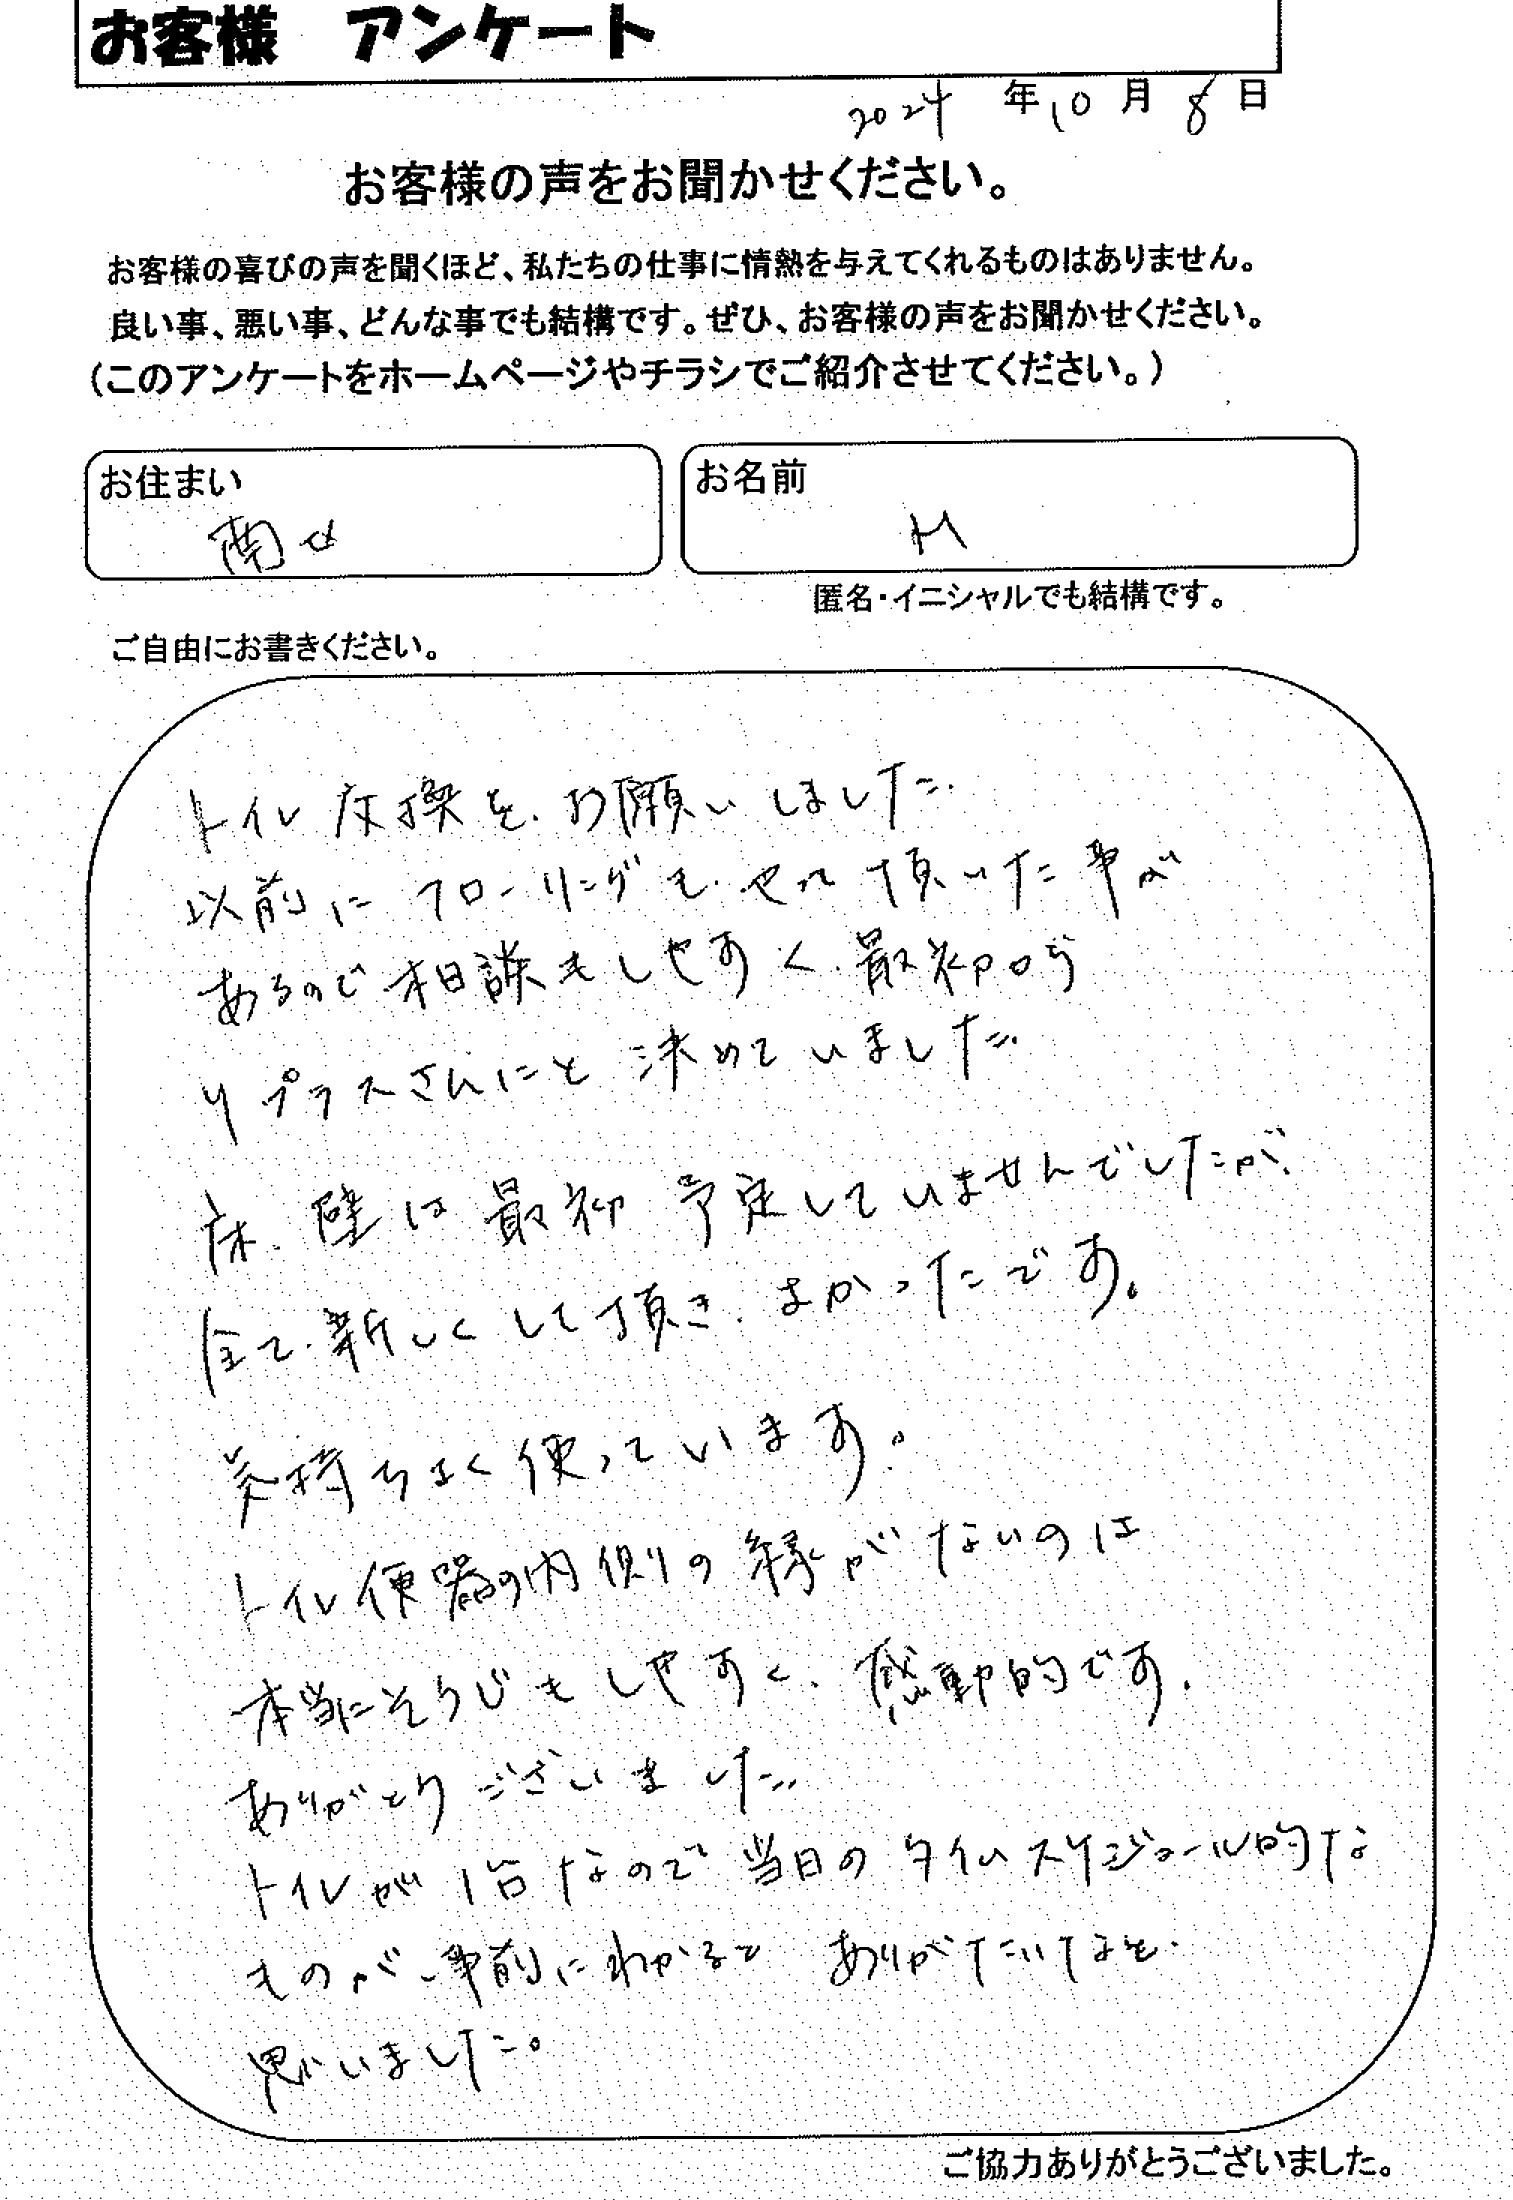 お客様 アンケート
2024年10月8日
お客様の声をお聞かせください。
お客様の喜びの声を聞くほど、私たちの仕事に情熱を与えてくれるものはありません。
良い事、悪い事、どんな事でも結構です。ぜひ、お客様の声をお聞かせください。
(このアンケートをホームページやチラシでご紹介させてください。)
お住まい
南区
お名前
M
匿名・イニシャルでも結構です。
ご自由にお書きください。
トイレ交換を、お願いしました。
以前にフローリングも、やって頂いた事が
あるので相談もしやすく、最初から
リプラスさんにと決めていました。
床、壁は最初予定していませんでしたが、
全て、新しくして頂き、よかったです。
気持ちよく使っています。
トイレ便器の内側の縁がないのは
本当にそうじもしやすく、感動的です。
ありがとうございました。
トイレが1台なので当日のタイムスケジュール的な
ものが、事前にわかるとありがたいなと、
思いました。
ご協力ありがとうございました。